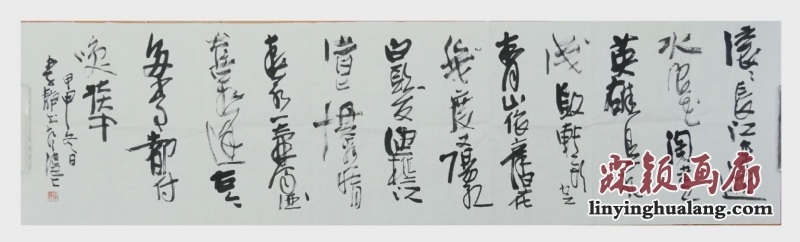 滚〻長江东逝
水浪花淘尽
英雄是非
成敗轉頭空
青山依舊在
幾度夕陽紅
白髮漁樵江
渚上慣看秋月
春风一壶濁酒
喜相逢古今
多少事都付
笑談中
甲申冬日
霖颖画廊
linyinghualang.com